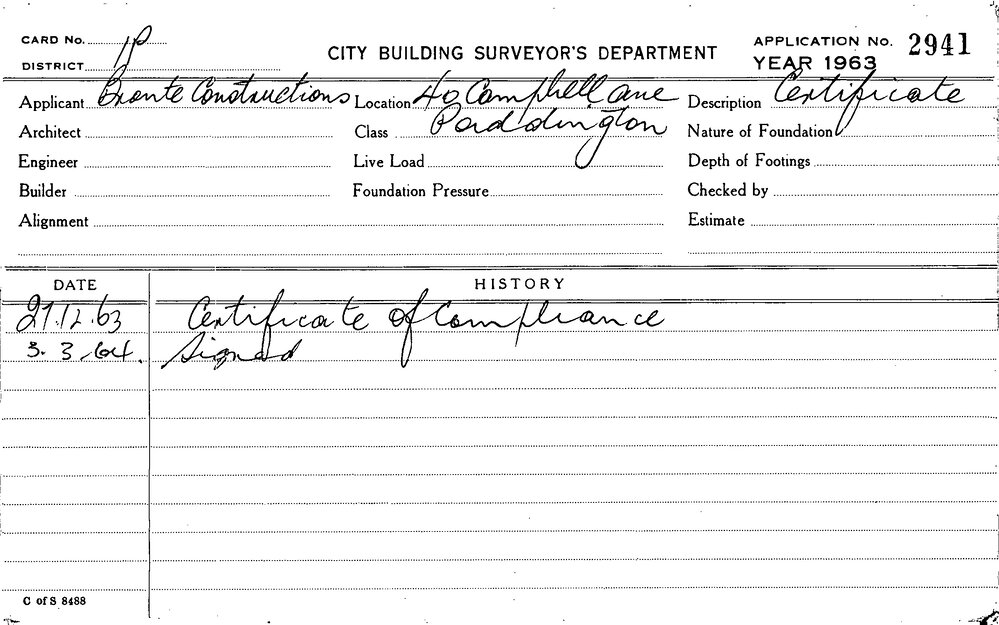 CARD No. 1P
CITY BUILDING SURVEYOR'S DEPARTMENT
APPLICATION No. 2941
DISTRICT
YEAR 1963
Applicant Bronte Constructions Location 40 Campbell Ave Description Certificate
Architect Class Paddington Nature of Foundation
Engineer Live Load Depth of Footings
Builder Foundation Pressure Checked by
Alignment Estimate
DATE HISTORY
27.12.63 Certificate of Compliance
3.3.64. Signed
C of S 8488